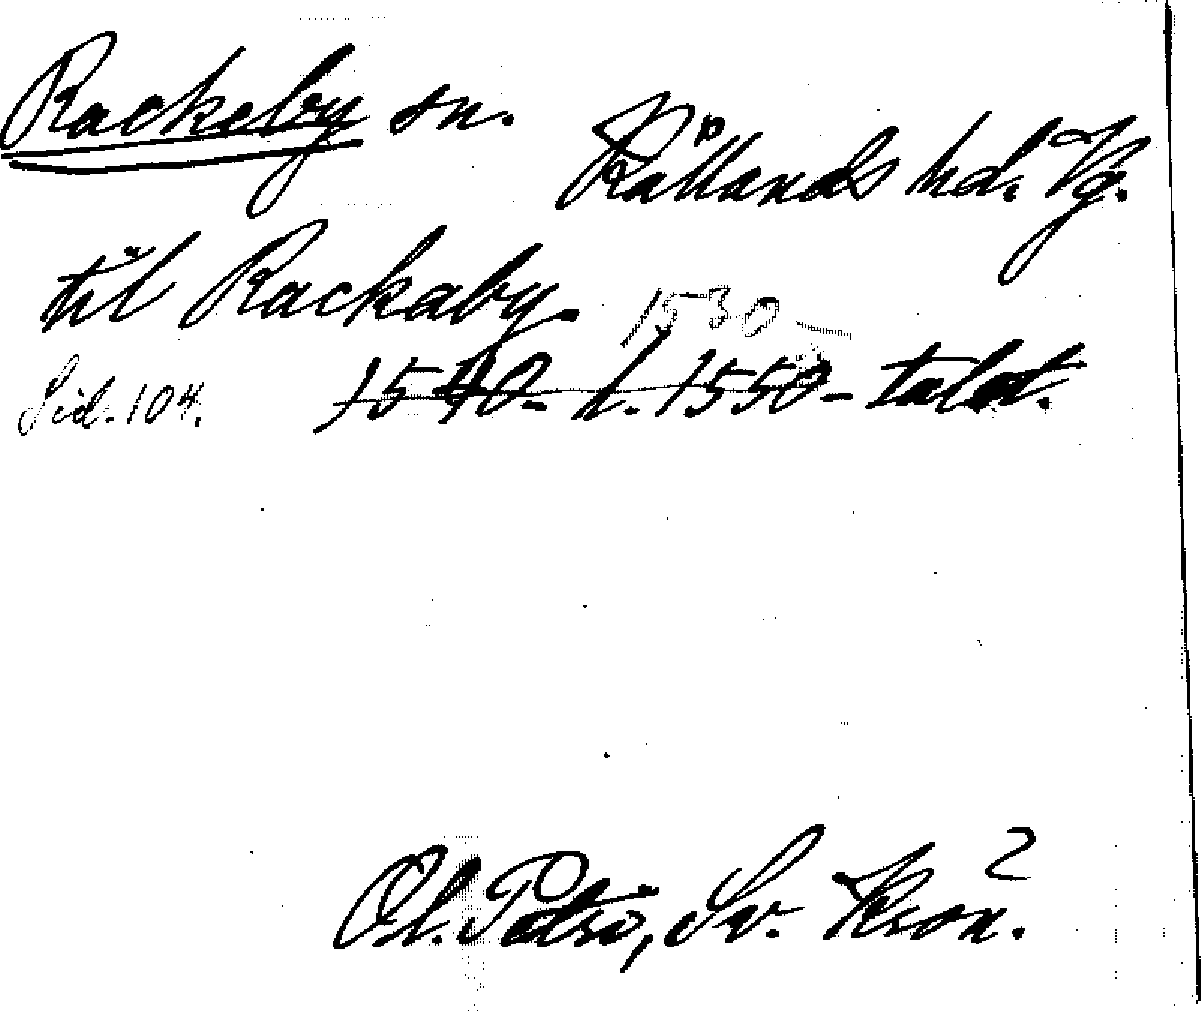 Rackeby sn.
Kållands hd. Vg.
til Rackaby.
1530-
Sid. 104. 1540- l. 1550-talet.
Ol. Petri, Sv. Krön. 2